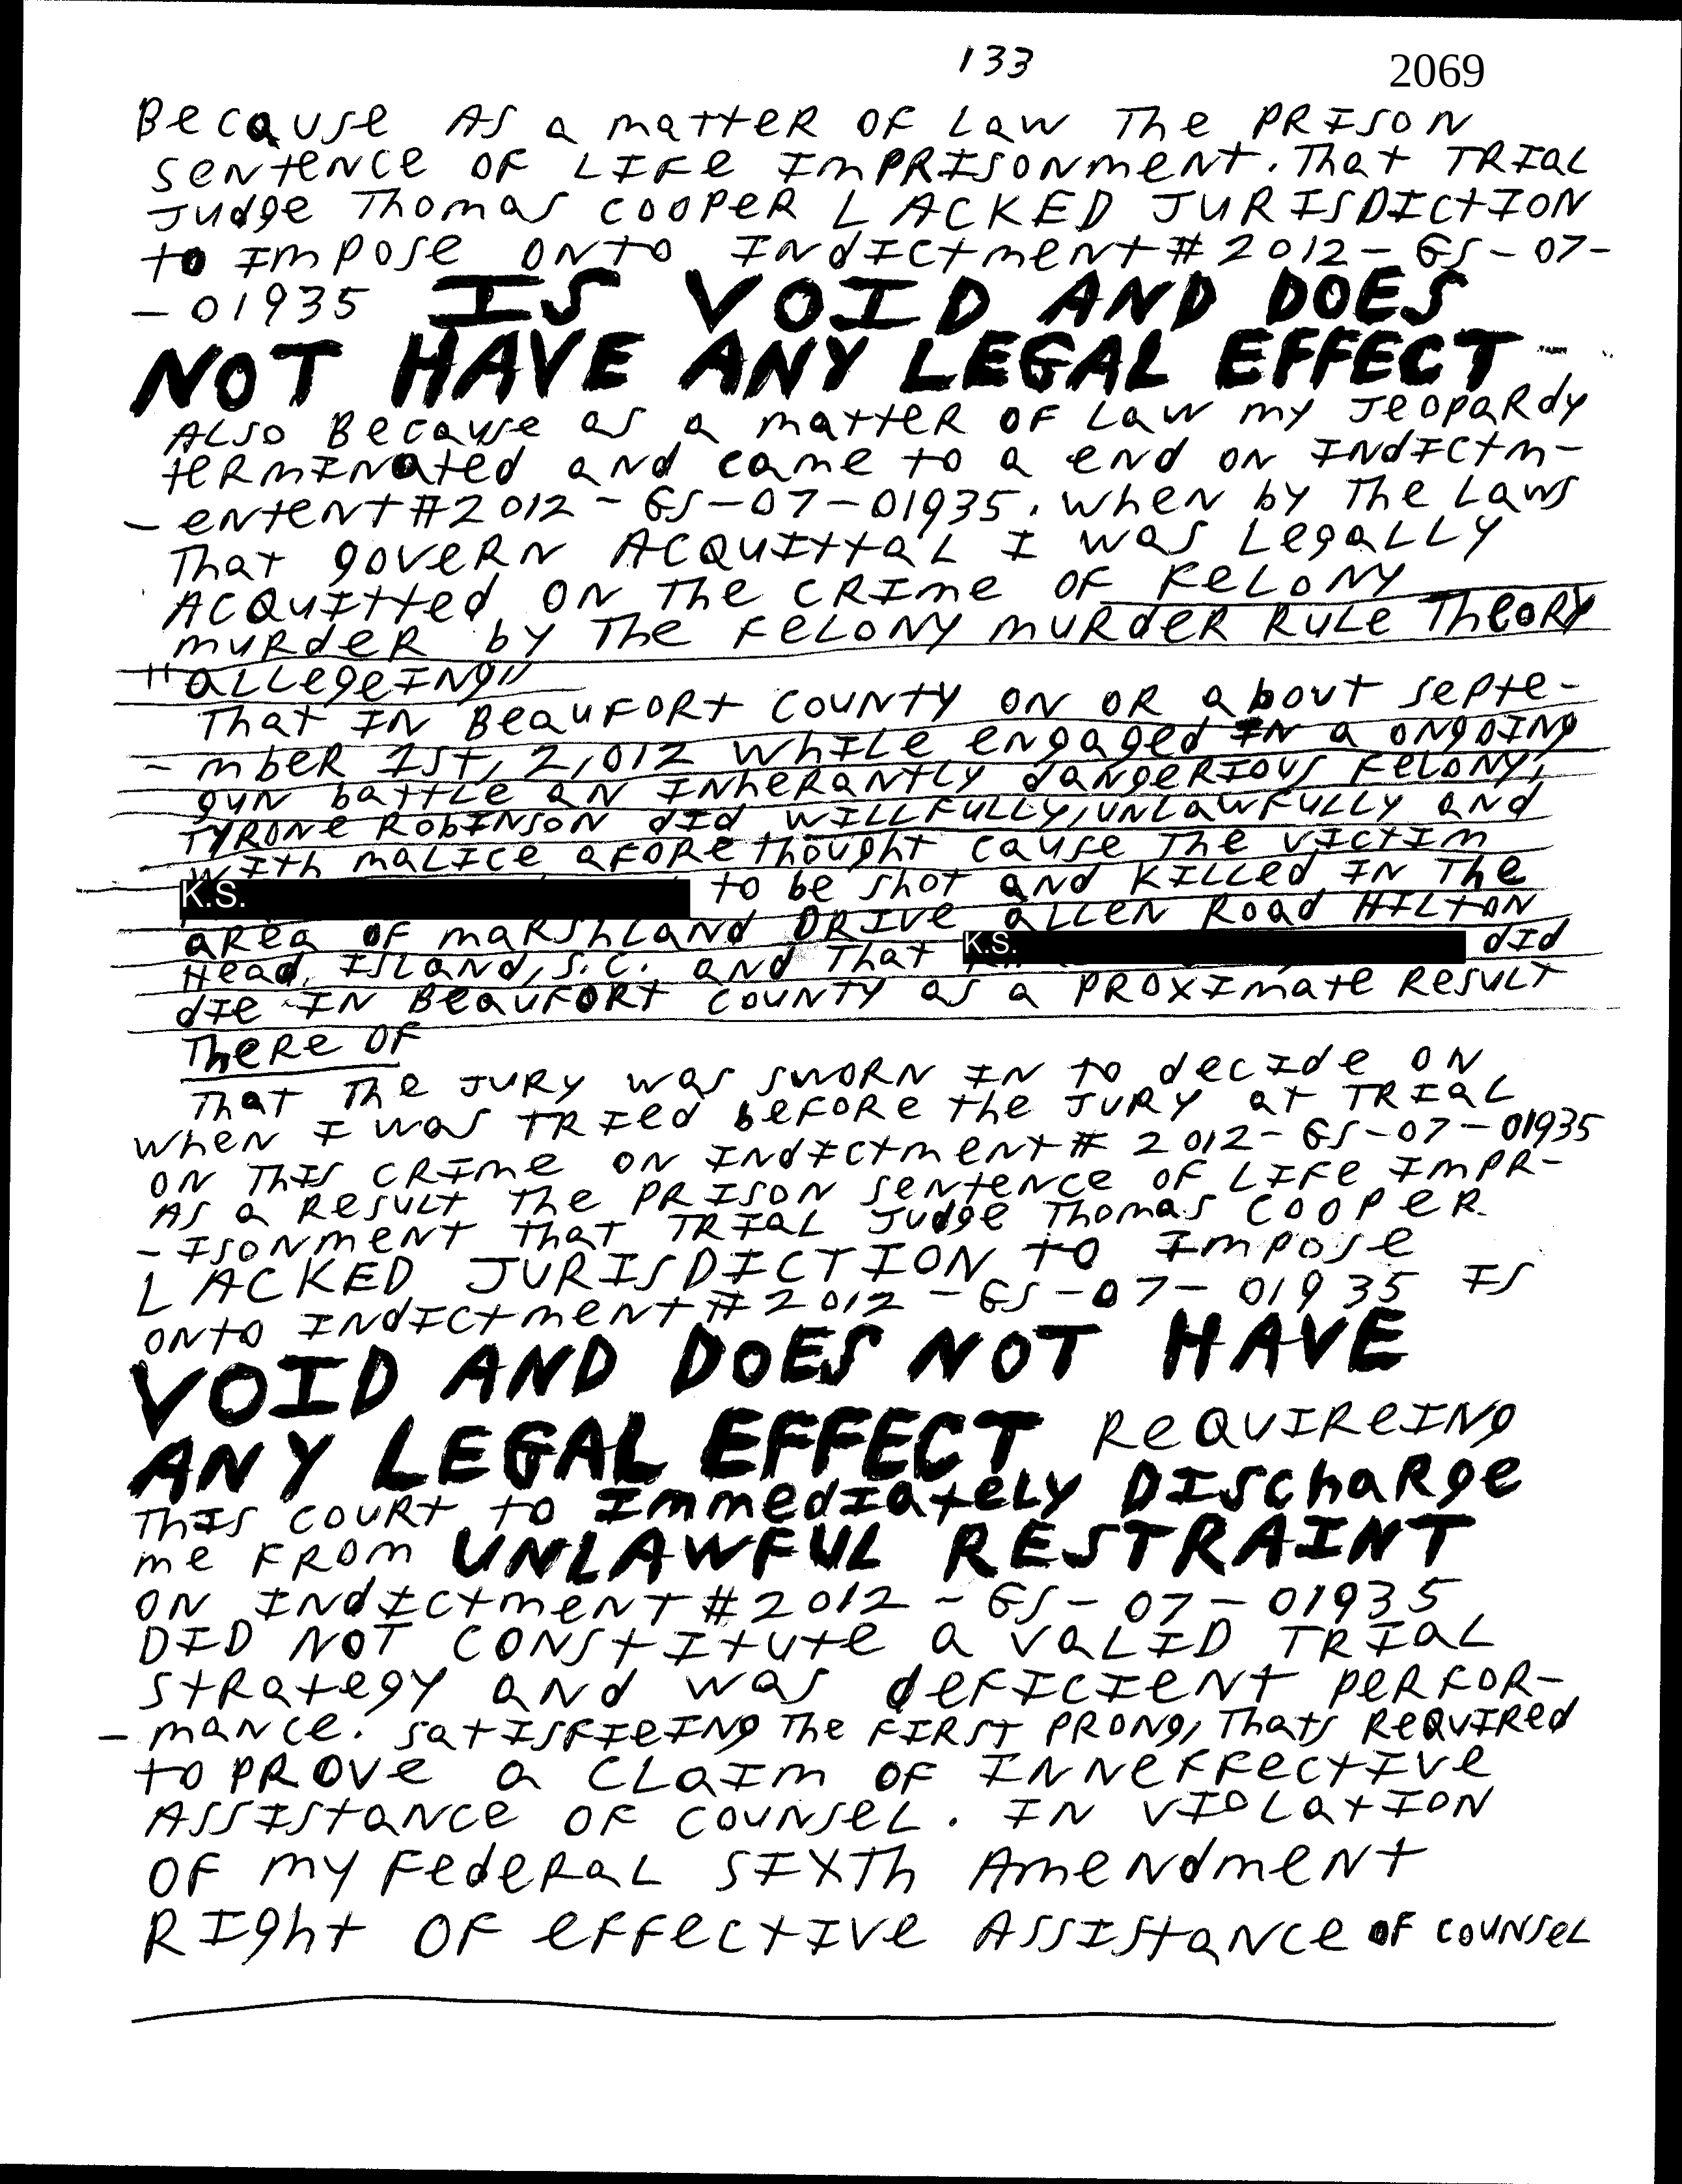 133
2069
Because As a matter OF Law The PRISON
sentence OF LIFE IMPRISONment. That TRIAL
Judge Thomas COOPER LACKED JURISDICtION
to Impose ONTO INdICtment#2012-GS-07-
-01935 IS VOID AND DOES
NOT HAVE ANY LEGAL EFFECT
ALSO Because as a matter OF Law my Jeopardy
terminated and came to a end on INDICtm-
-entent#2012-GS-07-01935. when by The Laws
That govern ACQUIttaL I was Legally
ACQUItted ON The CRIme OF FeLONY
murder by The FeLONY murder Rule Theory
"aLLegeINg"
That IN Beaufort County ON OR about Septe-
-mber 1st, 2,012 while engaged IN a ongoing
gun battle an INherantly dangerIous FeLONY,
TYRONE RobINSON did willfully, unlawfully and
with malice aforethought cause The victim
K.S. to be shot and killed IN The
area OF marshland DRIVE allen Road HILTON
Head, ISLand, S.C. and That K.S. did
dIe IN Beaufort County as a PROXImate Result
There OF
That The JURY was sworn IN to decIde ON
when I was TRIed before the JURY at TRIAL
ON THIS CRIme ON INdICtment# 2012-GS-07-01935
As a Result The PRISON sentence OF LIFe ImPR-
-ISONment That TRIaL Judge Thomas COOPER
LACKED JURISDICTION to Impose
ONTO INdICtment#2012-GS-07-01935 IS
VOID AND DOES NOT HAVE
ANY LEGAL EFFECT ReQUIReINg
THIS COURt to ImmedIateLy DIScharge
me From UNLAWFUL RESTRAINT
ON INdICtment#2012-GS-07-01935
DID NOT CONStItute a VaLID TRIaL
StRategy and was deFICIent perFor-
-mance. satISFIeINg The FIRST PRONg, Thats ReQUIRed
to PROVe a CLaIm OF INNeFFectIve
ASSIStance OF COUNSeL. IN VIOLatION
OF my Federal SIXTh Amendment
RIght OF eFFectIve ASSIStance OF COUNSeL